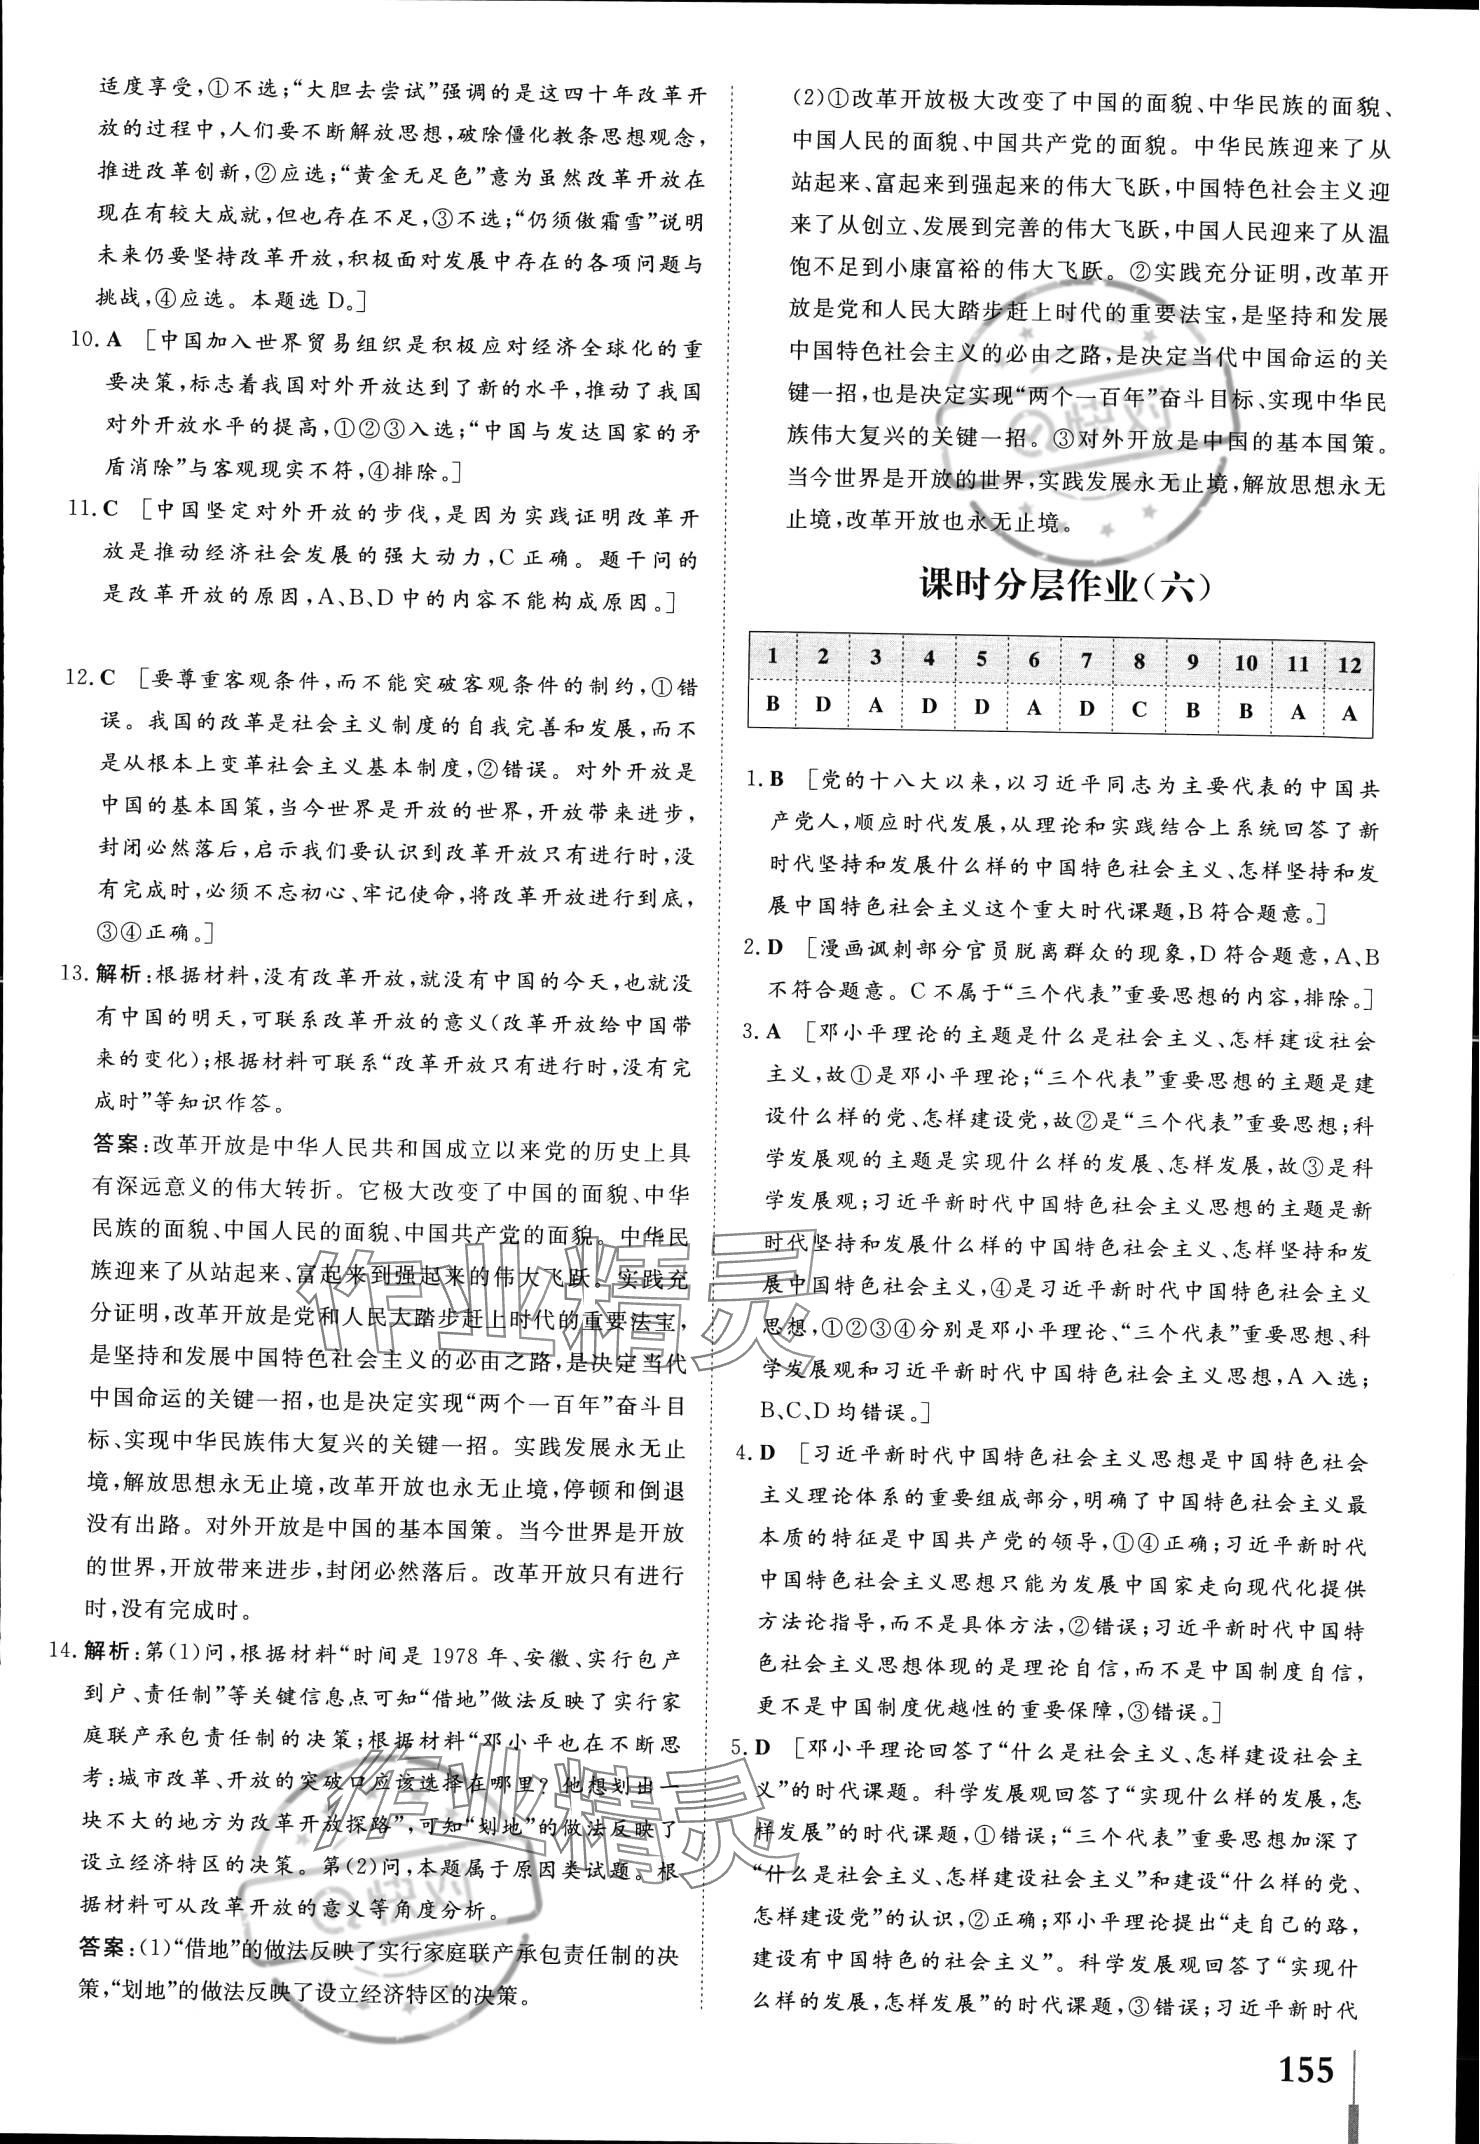 适度享受,①不选;“大胆去尝试”强调的是这四十年改革开
放的过程中,人们要不断解放思想,破除僵化教条思想观念,
推进改革创新,②应选;“黄金无足色”意为虽然改革开放在
现在有较大成就,但也存在不足,③不选;“仍须傲霜雪”说明
未来仍要坚持改革开放,积极面对发展中存在的各项问题与
挑战,④应选。本题选 D。]
10. A [中国加入世界贸易组织是积极应对经济全球化的重
要决策,标志着我国对外开放达到了新的水平,推动了我国
对外开放水平的提高,①②③入选;“中国与发达国家的矛
盾消除”与客观现实不符,④排除。]
11. C [中国坚定对外开放的步伐,是因为实践证明改革开
放是推动经济社会发展的强大动力,C 正确。题干问的
是改革开放的原因,A、B、D 中的内容不能构成原因。]
12. C [要尊重客观条件,而不能突破客观条件的制约,①错
误。我国的改革是社会主义制度的自我完善和发展,而不
是从根本上变革社会主义基本制度,②错误。对外开放是
中国的基本国策,当今世界是开放的世界,开放带来进步,
封闭必然落后,启示我们要认识到改革开放只有进行时,没
有完成时,必须不忘初心、牢记使命,将改革开放进行到底,
③④正确。]
13. 解析:根据材料,没有改革开放,就没有中国的今天,也就没
有中国的明天,可联系改革开放的意义(改革开放给中国带
来的变化);根据材料可联系“改革开放只有进行时,没有完
成时”等知识作答。
答案:改革开放是中华人民共和国成立以来党的历史上具
有深远意义的伟大转折。它极大改变了中国的面貌、中华
民族的面貌、中国人民的面貌、中国共产党的面貌。中华民
族迎来了从站起来、富起来到强起来的伟大飞跃。实践充
分证明,改革开放是党和人民大踏步赶上时代的重要法宝,
是坚持和发展中国特色社会主义的必由之路,是决定当代
中国命运的关键一招,也是决定实现“两个一百年”奋斗目
标、实现中华民族伟大复兴的关键一招。实践发展永无止
境,解放思想永无止境,改革开放也永无止境,停顿和倒退
没有出路。对外开放是中国的基本国策。当今世界是开放
的世界,开放带来进步,封闭必然落后。改革开放只有进行
时,没有完成时。
14. 解析:第(1)问,根据材料“时间是 1978 年、安徽、实行包产
到户、责任制”等关键信息点可知“借地”做法反映了实行家
庭联产承包责任制的决策;根据材料“邓小平也在不断思
考:城市改革、开放的突破口应该选择在哪里?他想划出一
块不大的地方为改革开放探路”,可知“划地”的做法反映了
设立经济特区的决策。第(2)问,本题属于原因类试题。根
据材料可从改革开放的意义等角度分析。
答案:(1)“借地”的做法反映了实行家庭联产承包责任制的决
策,“划地”的做法反映了设立经济特区的决策。
(2)①改革开放极大改变了中国的面貌、中华民族的面貌、
中国人民的面貌、中国共产党的面貌。中华民族迎来了从
站起来、富起来到强起来的伟大飞跃,中国特色社会主义迎
来了从创立、发展到完善的伟大飞跃,中国人民迎来了从温
饱不足到小康富裕的伟大飞跃。②实践充分证明,改革开
放是党和人民大踏步赶上时代的重要法宝,是坚持和发展
中国特色社会主义的必由之路,是决定当代中国命运的关
键一招,也是决定实现“两个一百年”奋斗目标、实现中华民
族伟大复兴的关键一招。③对外开放是中国的基本国策。
当今世界是开放的世界,实践发展永无止境,解放思想永无
止境,改革开放也永无止境。
课时分层作业(六)
1 2 3 4 5 6 7 8 9 10 11 12
B D A D D A D C B B A A
1. B [党的十八大以来,以习近平同志为主要代表的中国共
产党人,顺应时代发展,从理论和实践结合上系统回答了新
时代坚持和发展什么样的中国特色社会主义、怎样坚持和发
展中国特色社会主义这个重大时代课题,B 符合题意。]
2. D [漫画讽刺部分官员脱离群众的现象,D 符合题意,A、B
不符合题意。C 不属于“三个代表”重要思想的内容,排除。]
3. A [邓小平理论的主题是什么是社会主义、怎样建设社会
主义,故①是邓小平理论;“三个代表”重要思想的主题是建
设什么样的党、怎样建设党,故②是“三个代表”重要思想;科
学发展观的主题是实现什么样的发展、怎样发展,故③是科
学发展观;习近平新时代中国特色社会主义思想的主题是新
时代坚持和发展什么样的中国特色社会主义、怎样坚持和发
展中国特色社会主义,④是习近平新时代中国特色社会主义
思想,①②③④分别是邓小平理论、“三个代表”重要思想、科
学发展观和习近平新时代中国特色社会主义思想,A 入选;
B、C、D 均错误。]
4. D [习近平新时代中国特色社会主义思想是中国特色社会
主义理论体系的重要组成部分,明确了中国特色社会主义最
本质的特征是中国共产党的领导,①④正确;习近平新时代
中国特色社会主义思想只能为发展中国家走向现代化提供
方法论指导,而不是具体方法,②错误;习近平新时代中国特
色社会主义思想体现的是理论自信,而不是中国制度自信,
更不是中国制度优越性的重要保障,③错误。]
5. D [邓小平理论回答了“什么是社会主义、怎样建设社会主
义”的时代课题。科学发展观回答了“实现什么样的发展,怎
样发展”的时代课题,①错误;“三个代表”重要思想加深了
“什么是社会主义、怎样建设社会主义”和建设“什么样的党、
怎样建设党”的认识,②正确;邓小平理论提出“走自己的路,
建设有中国特色的社会主义”。科学发展观回答了“实现什
么样的发展,怎样发展”的时代课题,③错误;习近平新时代
155
作业精灵
作业精灵